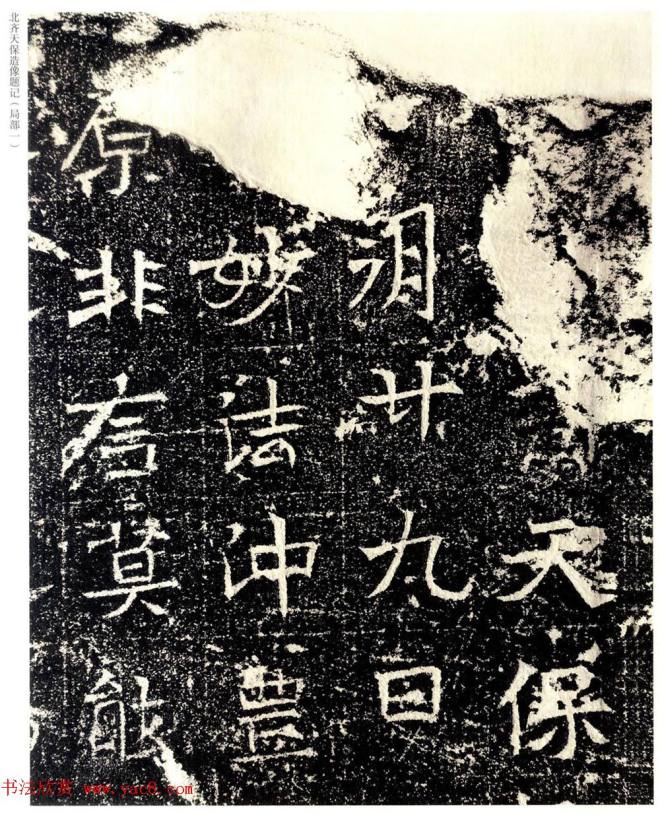 北齐天保造像题记（局部一）
天保
廿九日
妙法沖豊
非言莫能
书法欣赏 www.yac8.com